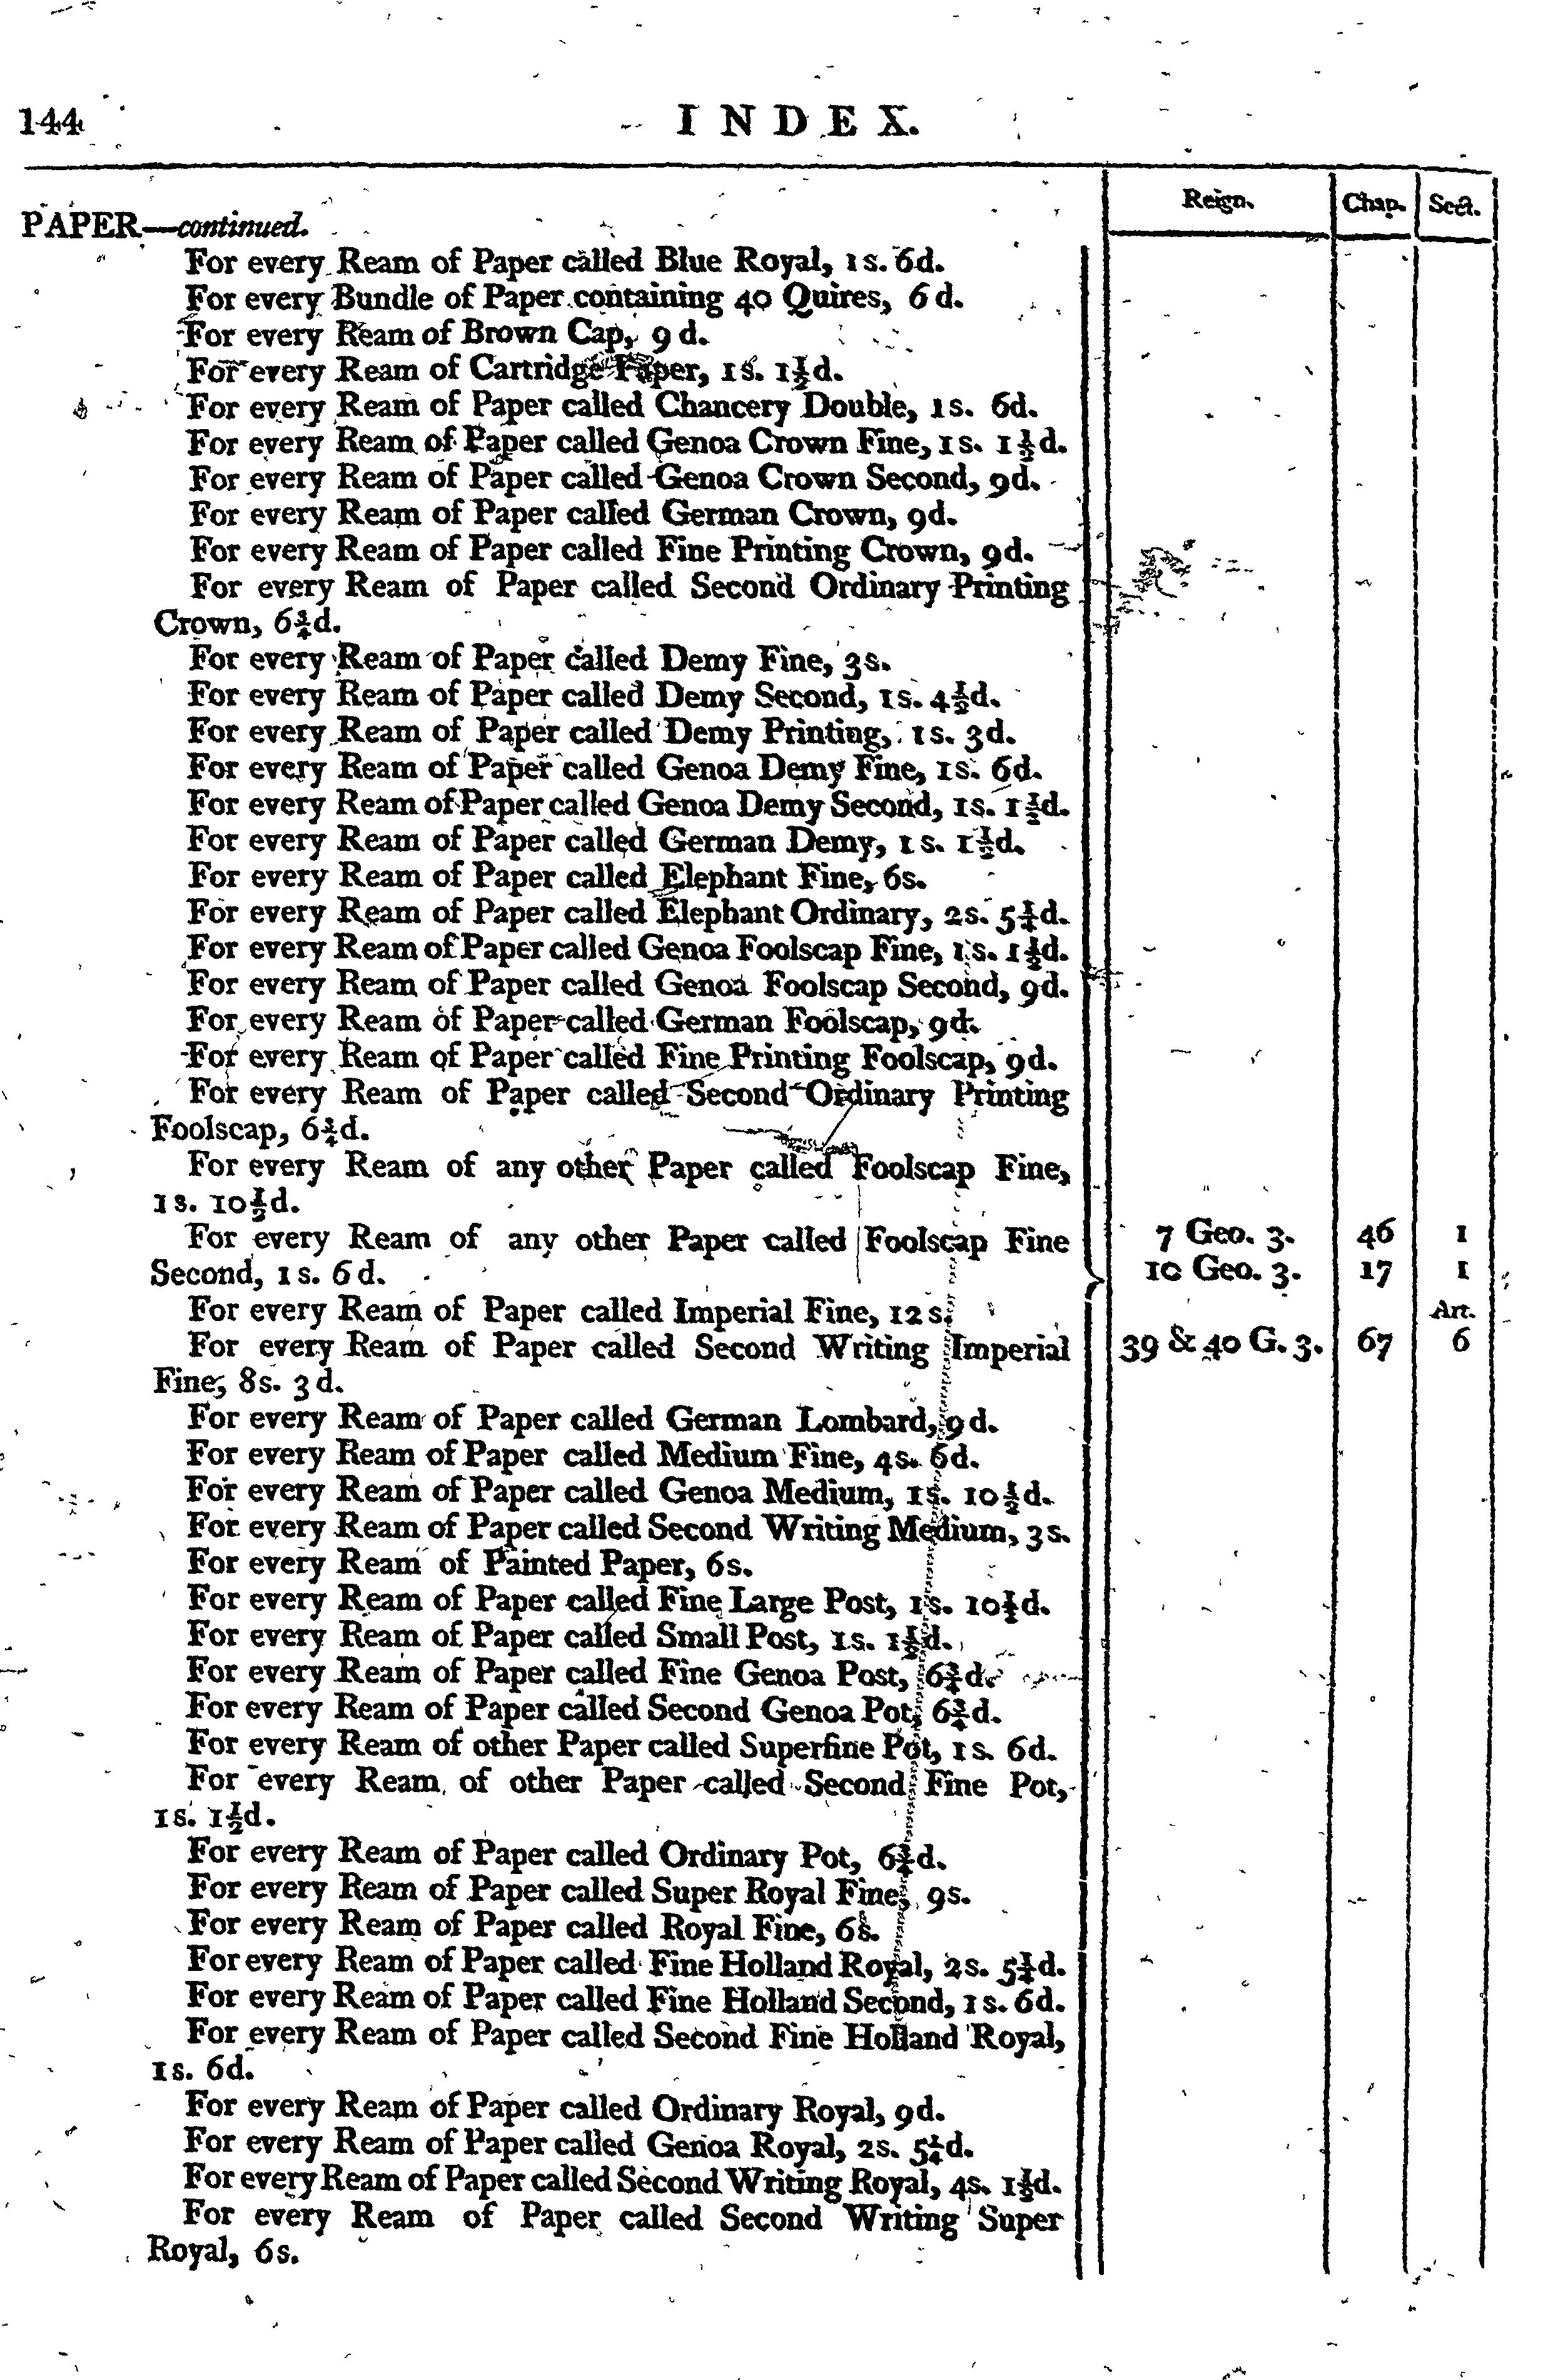 144
INDEX.
Reign.
Chap.
Sect.
PAPER—continued.
For every Ream of Paper called Blue Royal, 1s. 6d.
For every Bundle of Paper containing 40 Quires, 6d.
For every Ream of Brown Cap, 9d.
For every Ream of Cartridge Paper, 1s. 1½d.
For every Ream of Paper called Chancery Double, 1s. 6d.
For every Ream of Paper called Genoa Crown Fine, 1s. 1½d.
For every Ream of Paper called Genoa Crown Second, 9d.
For every Ream of Paper called German Crown, 9d.
For every Ream of Paper called Fine Printing Crown, 9d.
For every Ream of Paper called Second Ordinary Printing
Crown, 6¾d.
For every Ream of Paper called Demy Fine, 3s.
For every Ream of Paper called Demy Second, 1s. 4½d.
For every Ream of Paper called Demy Printing, 1s. 3d.
For every Ream of Paper called Genoa Demy Fine, 1s. 6d.
For every Ream of Paper called Genoa Demy Second, 1s. 1½d.
For every Ream of Paper called German Demy, 1s. 1½d.
For every Ream of Paper called Elephant Fine, 6s.
For every Ream of Paper called Elephant Ordinary, 2s. 5¼d.
For every Ream of Paper called Genoa Foolscap Fine, 1s. 1½d.
For every Ream of Paper called Genoa Foolscap Second, 9d.
For every Ream of Paper called German Foolscap, 9d.
For every Ream of Paper called Fine Printing Foolscap, 9d.
For every Ream of Paper called Second Ordinary Printing
Foolscap, 6¾d.
For every Ream of any other Paper called Foolscap Fine,
1s. 10½d.
For every Ream of any other Paper called Foolscap Fine
7 Geo. 3. 46 1
Second, 1s. 6d.
10 Geo. 3. 17 1
For every Ream of Paper called Imperial Fine, 12s.
Art.
For every Ream of Paper called Second Writing Imperial
39 & 40 G. 3. 67 6
Fine, 8s. 3d.
For every Ream of Paper called German Lombard, 9d.
For every Ream of Paper called Medium Fine, 4s. 6d.
For every Ream of Paper called Genoa Medium, 1s. 10½d.
For every Ream of Paper called Second Writing Medium, 3s.
For every Ream of Painted Paper, 6s.
For every Ream of Paper called Fine Large Post, 1s. 10½d.
For every Ream of Paper called Small Post, 1s. 1½d.
For every Ream of Paper called Fine Genoa Post, 6¾d.
For every Ream of Paper called Second Genoa Pot, 6¾d.
For every Ream of other Paper called Superfine Pot, 1s. 6d.
For every Ream of other Paper called Second Fine Pot,
1s. 1½d.
For every Ream of Paper called Ordinary Pot, 6¾d.
For every Ream of Paper called Super Royal Fine, 9s.
For every Ream of Paper called Royal Fine, 6s.
For every Ream of Paper called Fine Holland Royal, 2s. 5¼d.
For every Ream of Paper called Fine Holland Second, 1s. 6d.
For every Ream of Paper called Second Fine Holland Royal,
1s. 6d.
For every Ream of Paper called Ordinary Royal, 9d.
For every Ream of Paper called Genoa Royal, 2s. 5¼d.
For every Ream of Paper called Second Writing Royal, 4s. 1½d.
For every Ream of Paper called Second Writing Super
Royal, 6s.